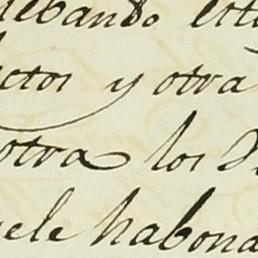 lebando esta
ctos y otra
otra los
ele habona